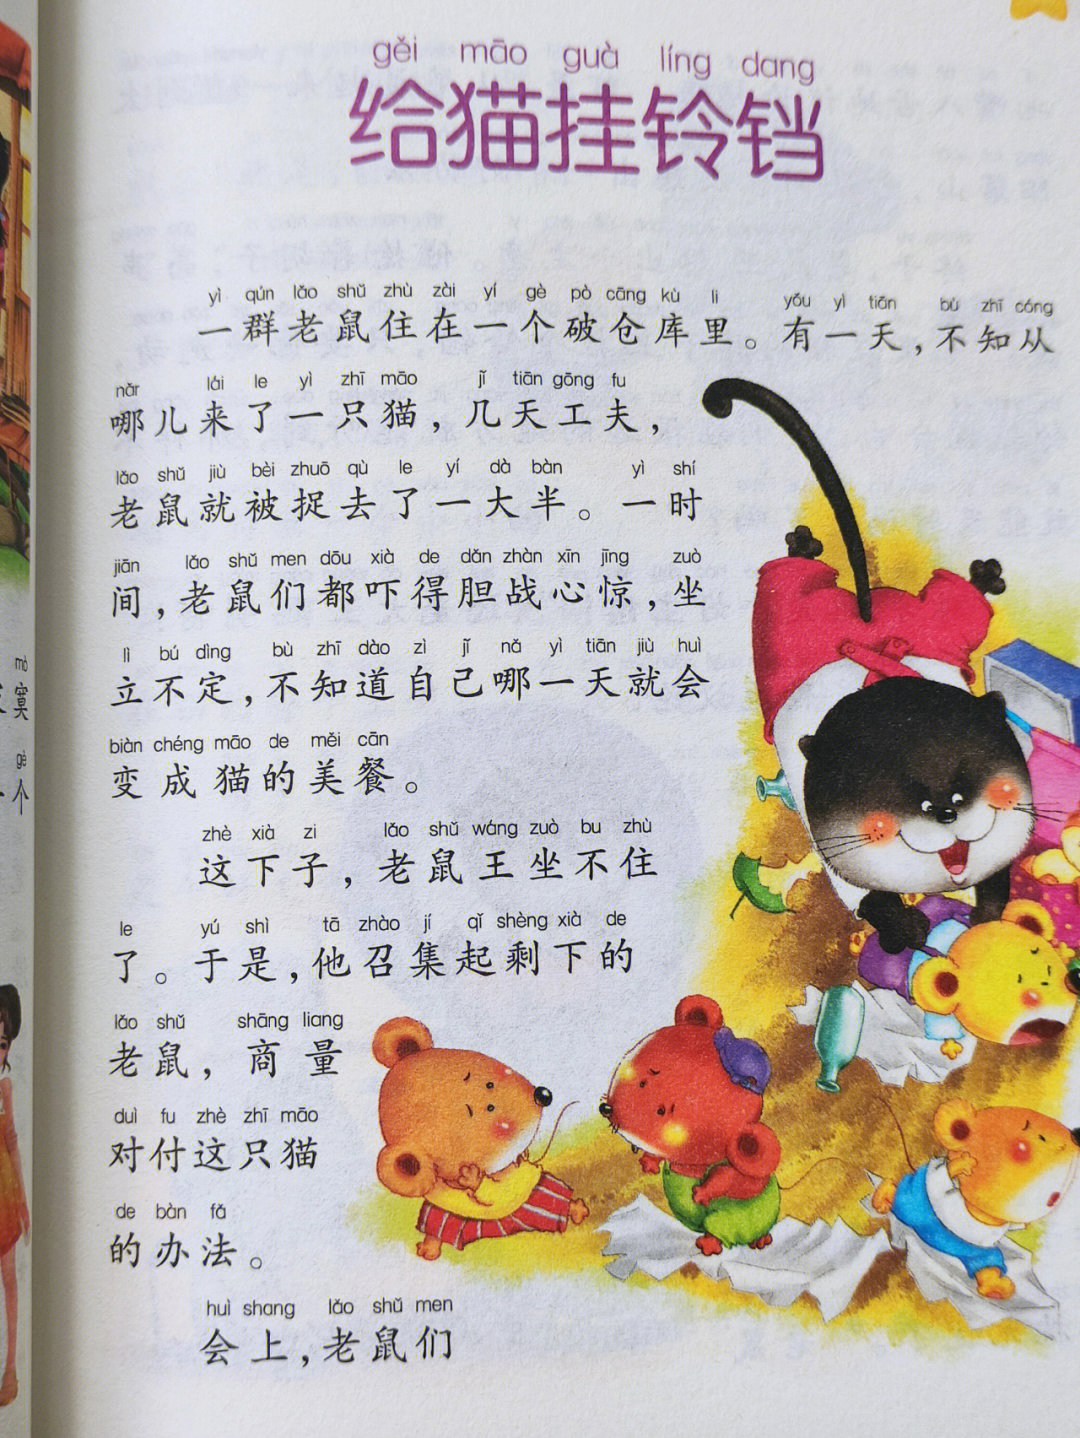 gěi māo guà líng dang
给猫挂铃铛
yì qún lǎo shǔ zhù zài yí gè pò cāng kù li yǒu yì tiān bù zhī cóng
一群老鼠住在一个破仓库里。有一天，不知从
nǎr lái le yì zhī māo jǐ tiān gōng fu
哪儿来了一只猫，几天工夫，
lǎo shǔ jiù bèi zhuō qù le yí dà bàn yì shí
老鼠就被捉去了一大半。一时
jiān lǎo shǔ men dōu xià de dǎn zhàn xīn jīng zuò
间，老鼠们都吓得胆战心惊，坐
lì bú dìng bù zhī dào zì jǐ nǎ yì tiān jiù huì
立不定，不知道自己哪一天就会
biàn chéng māo de měi cān
变成猫的美餐。
zhè xià zi lǎo shǔ wáng zuò bu zhù
这下子，老鼠王坐不住
le yú shì tā zhào jí qǐ shèng xià de
了。于是，他召集起剩下的
lǎo shǔ shāng liang
老鼠，商量
duì fu zhè zhī māo
对付这只猫
de bàn fǎ
的办法。
huì shang lǎo shǔ men
会上，老鼠们
mò
寞
gè
个